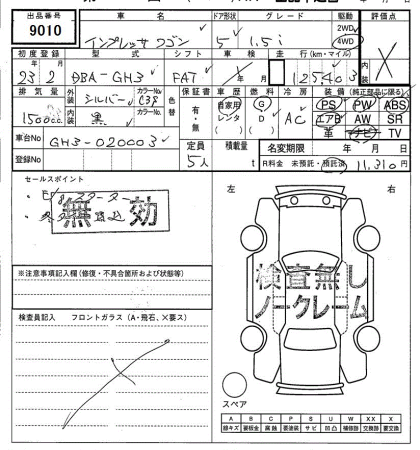 出品番号 車名 ドア形状 グレード 駆動 評価点
9010 インプレッサワゴン 5 1.5i 2WD 4WD X
内装
初度登録 型式 シフト 車検 走行(km・マイル)
23年2月 DBA-GH3 FAT 年 月 125403
排気量 外装 シルバー カラーNo. C38 色替 保証書 車歴 燃料 冷房 装備(純正部品に限る)
1500cc 内装 黒 カラーNo. 有・無 自家用 レンタ G D AC PS PW ABS
エアB AW SR
革 ナビ TV
車台No GH3-020003 定員 積載量 名変期限 年 月 日
登録No 5人 t R料金 未預託・預託済 11,310円
セールスポイント 左 右
無効
検査無し
ノークレーム
※注意事項記入欄(修復・不具合箇所および状態等)
検査員記入 フロントガラス(A・飛石、×要ス)
スペア
A B C P S U W XX X
線キズ 要板金 腐触 要塗装 サビ 凹凸 補修跡 交換跡 要交換